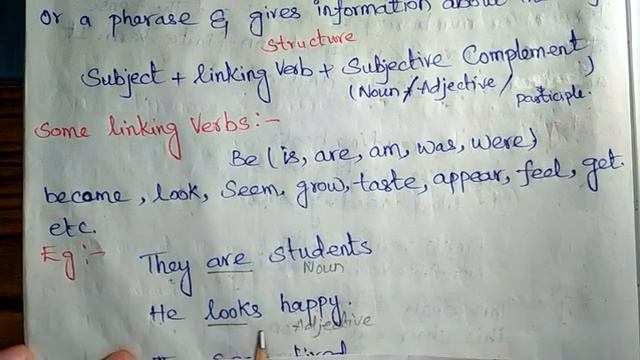 or a pharase & gives information about the
structure
Subject + linking verb + Subjective Complement
(Noun / Adjective / participle.)
Some linking verbs:-
Be (is, are, am, was, were)
become, look, seem, grow, taste, appear, feel, get.
etc.
Eg:- They are students
Noun
He looks happy.
Adjective
tired